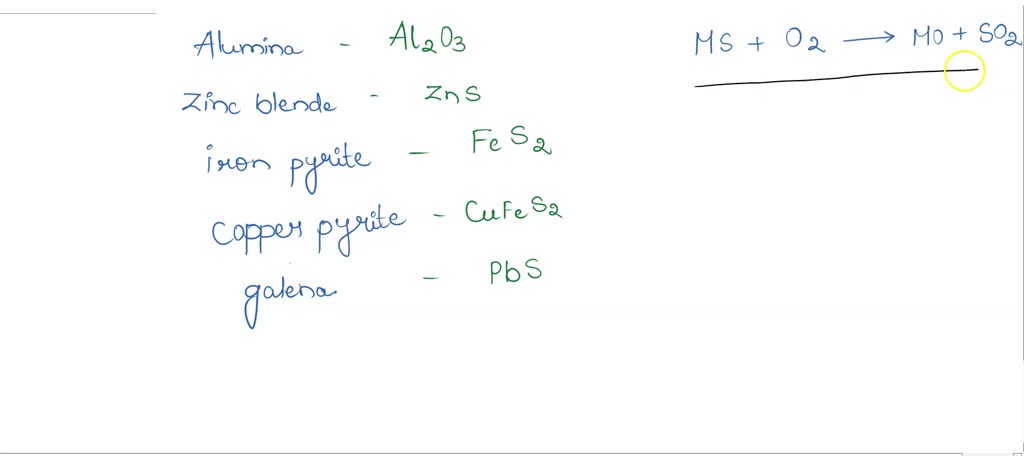 Alumina - Al2O3
Zinc blende - ZnS
iron pyrite - FeS2
Copper pyrite - CuFeS2
galena - PbS
MS + O2 → MO + SO2